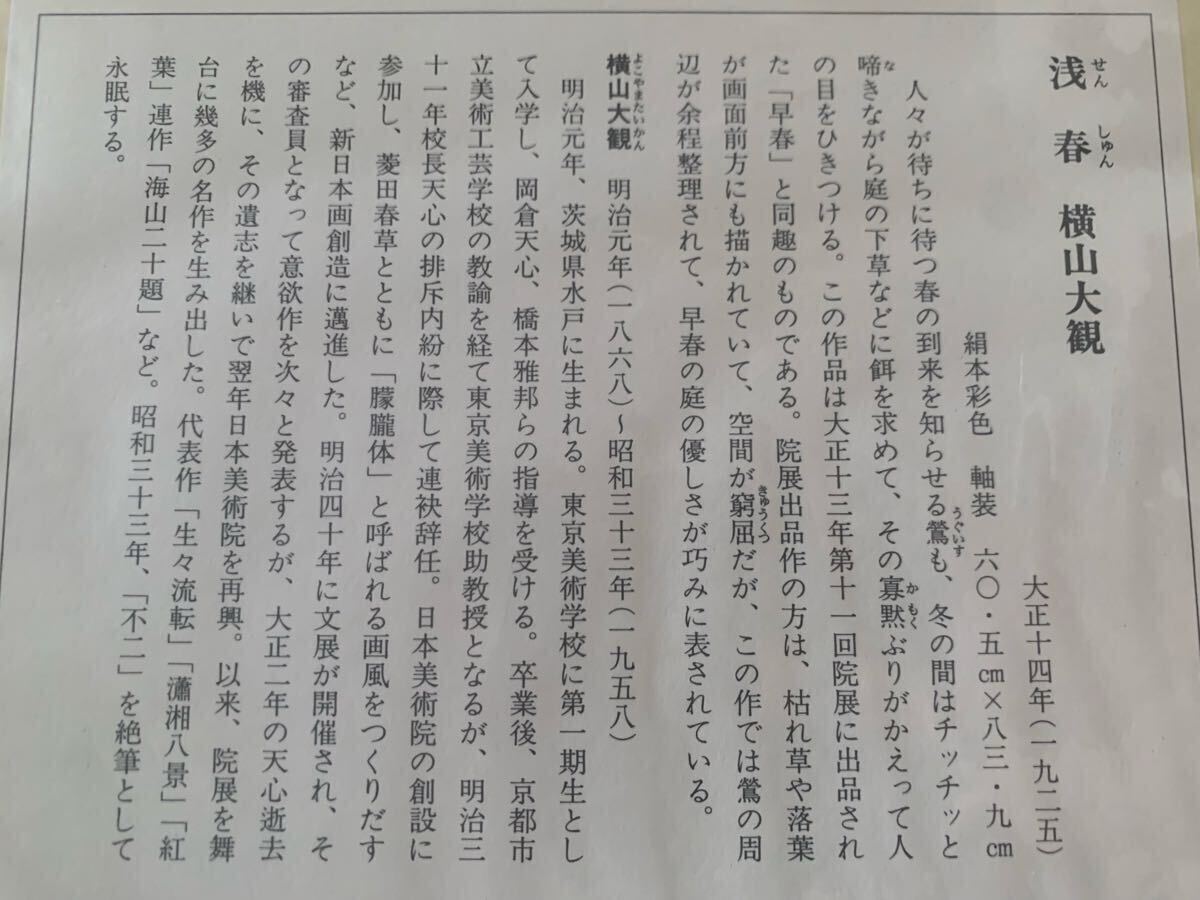 浅春 横山大観
せん しゅん
大正十四年(一九二五)
絹本彩色 軸装 六〇・五㎝×八三・九㎝
人々が待ちに待つ春の到来を知らせる鶯も、冬の間はチッチッと
うぐいす
啼きながら庭の下草などに餌を求めて、その寡黙ぶりがかえって人
な かもく
の目をひきつける。この作品は大正十三年第十一回院展に出品され
た「早春」と同趣のものである。院展出品作の方は、枯れ草や落葉
が画面前方にも描かれていて、空間が窮屈だが、この作では鶯の周
きゅうくつ
辺が余程整理されて、早春の庭の優しさが巧みに表されている。
横山大観 明治元年(一八六八)〜昭和三十三年(一九五八)
よこやまたいかん
明治元年、茨城県水戸に生まれる。東京美術学校に第一期生とし
て入学し、岡倉天心、橋本雅邦らの指導を受ける。卒業後、京都市
立美術工芸学校の教諭を経て東京美術学校助教授となるが、明治三
十一年校長天心の排斥内紛に際して連袂辞任。日本美術院の創設に
参加し、菱田春草とともに「朦朧体」と呼ばれる画風をつくりだす
など、新日本画創造に邁進した。明治四十年に文展が開催され、そ
の審査員となって意欲作を次々と発表するが、大正二年の天心逝去
を機に、その遺志を継いで翌年日本美術院を再興。以来、院展を舞
台に幾多の名作を生み出した。代表作「生々流転」「瀟湘八景」「紅
葉」連作「海山二十題」など。昭和三十三年、「不二」を絶筆として
永眠する。